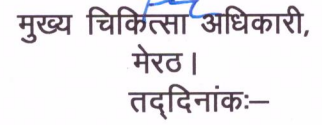 मुख्य चिकित्सा अधिकारी,
मेरठ।
तद्दिनांकः–